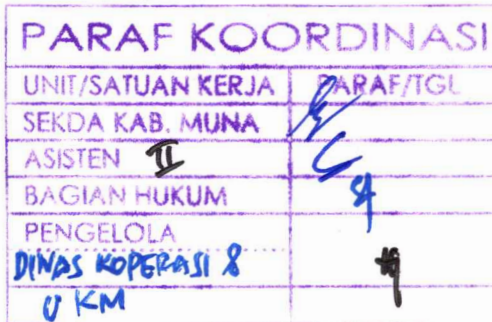 PARAF KOORDINASI
UNIT/SATUAN KERJA PARAF/TGL
SEKDA KAB. MUNA
ASISTEN II
BAGIAN HUKUM
PENGELOLA
DINAS KOPERASI &
UKM